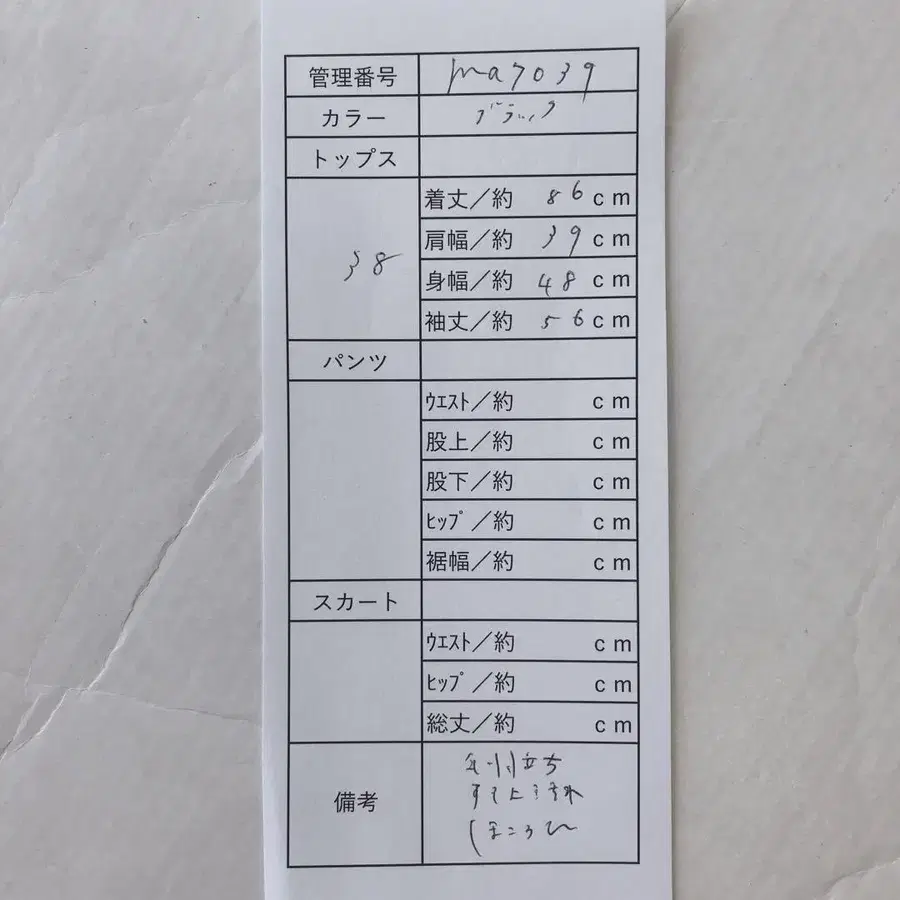 管理番号 ma7039
カラー ブラック
トップス
38
着丈／約 86cm
肩幅／約 39cm
身幅／約 48cm
袖丈／約 56cm
パンツ
ｳｴｽﾄ／約 cm
股上／約 cm
股下／約 cm
ﾋｯﾌﾟ／約 cm
裾幅／約 cm
スカート
ｳｴｽﾄ／約 cm
ﾋｯﾌﾟ／約 cm
総丈／約 cm
備考
立ち
ほころび